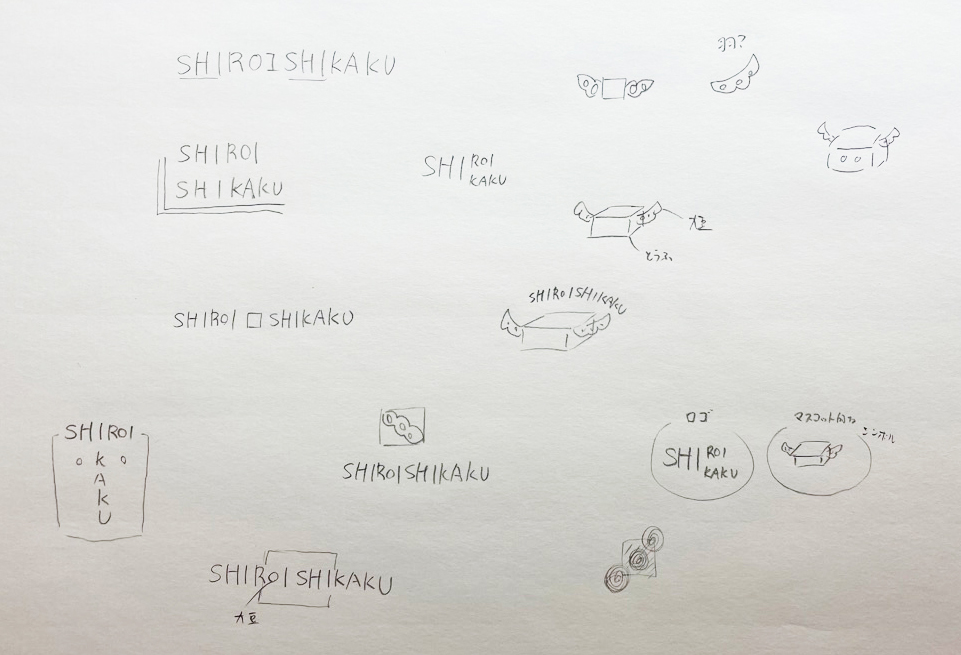 SHIROISHIKAKU
羽?
SHIROI
SHIKAKU
SHI ROI
KAKU
大豆
とうふ
SHIROISHIKAKU
SHIROI□SHIKAKU
SHIROI
K
A
K
U
SHIROISHIKAKU
ロゴ
SHI ROI
KAKU
マスコット的な
シンボル
SHIROISHIKAKU
大豆